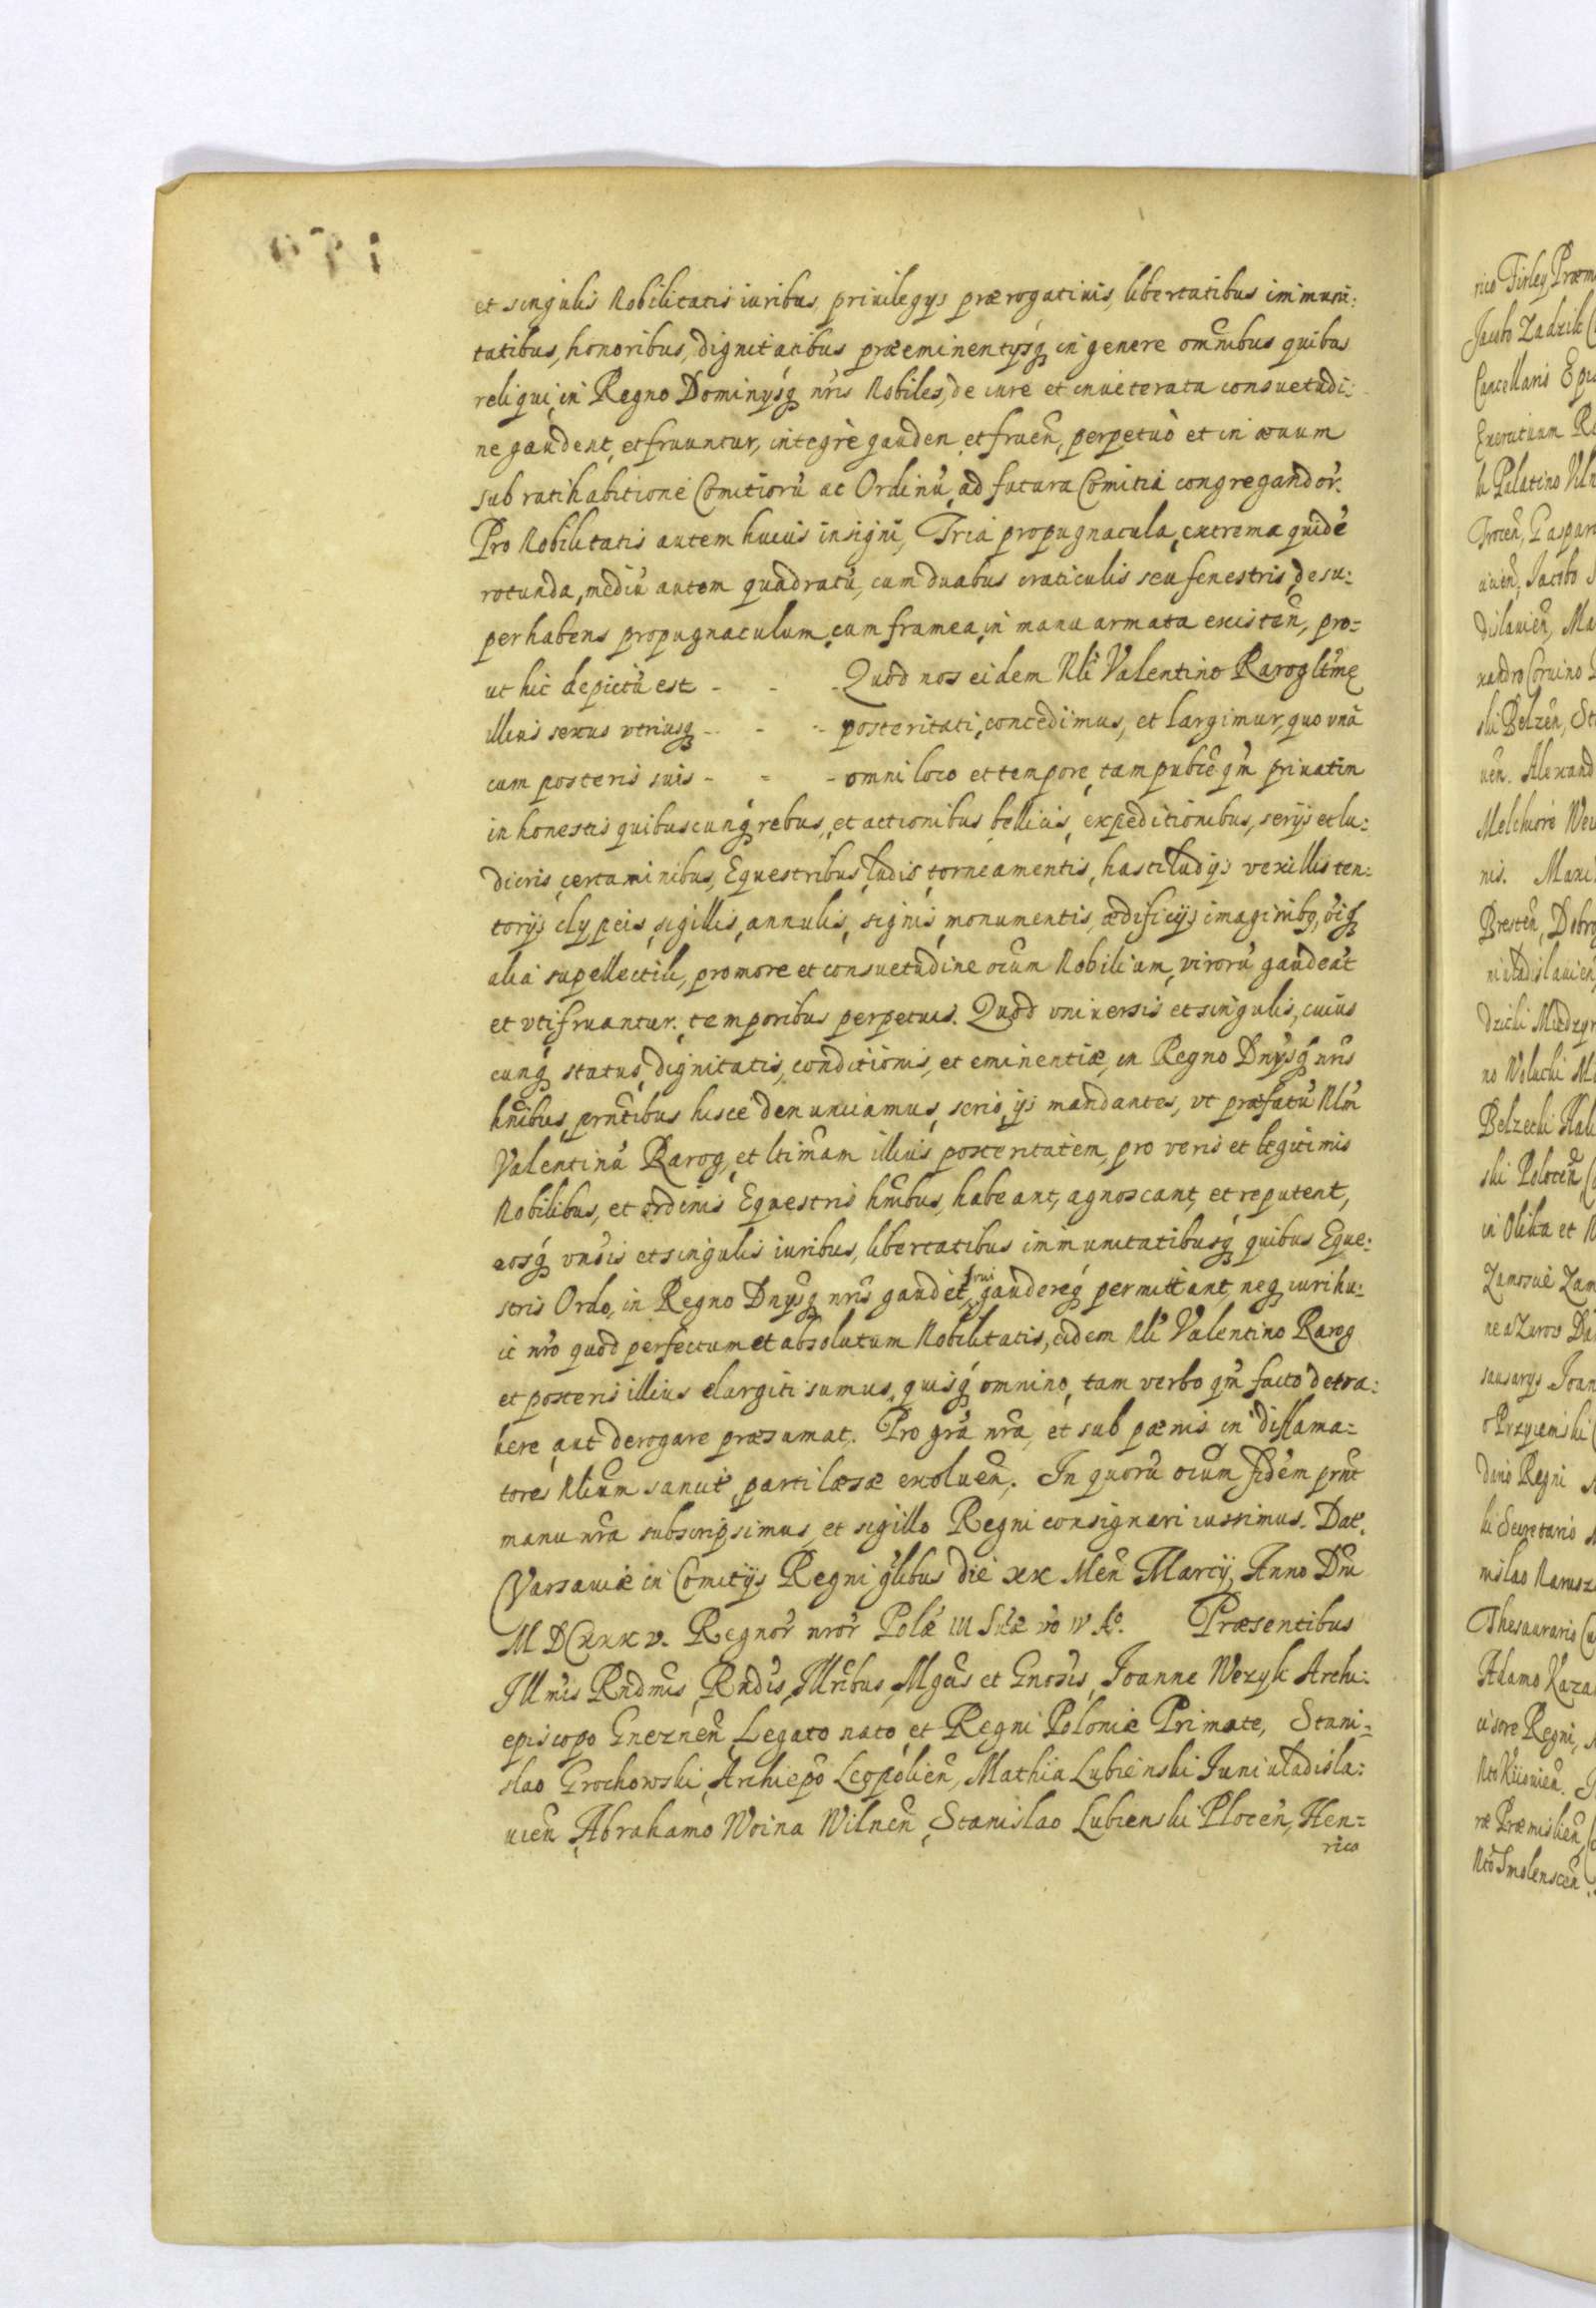 et singulis Nobilitatis iuribus, priuilegys prærogatiuis, libertatibus immuni:
tatibus, honoribus, dignitatibus præeminentysq́ in genere omnibus quibus
reliqui in Regno Dominysq́ nr̃is Nobiles, de iure et inueterata consuetudi:
ne gaudent, et fruuntur, integrè gauden̄, et fruen̄, perpetuò et in æuum
sub ratihabitione Comitiorũ ac Ordinũ ad futura Comitia congregandor̃.
Pro Nobilitatis autem huius insigni, Tria propugnacula, extrema quidẽ
rotunda, mediũ autem quadratũ, cum duabus craticulis seu fenestris, desu:
per habens propugnaculum, cum framea, in manu armata existen̄, pro=
ut hic depictũ est - - - Quod nos eidem Nli Valentino Rarog ltmę
illius sexus vtriusq́ - - - posteritati, concedimus, et largimur, quo vnà
cum posteris suis - - - omni loco et tempore, tam publicè q̃m priuatim
in honestis quibuscunq́ rebus, et actionibus, bellicis, expeditionibus, serys et lu:
dicris, certaminibus, Equestribus, ludis, torneamentis, hastiludys vexillis ten:
torys clypeis, sigillis, annulis, signis, monumentis, ædificys imaginibq,
alia supellectili, pro more et consuetudine oiũm Nobilium, virorũ gaudeãt
et vtifruantur. temporibus perpetuis. Quod vniuersis et singulis, cuius
cunq́ status, dignitatis, conditionis, et eminentiæ, in Regno Dnysq́ nr̃is
hñibus, prñtibus hisce denunciamus, serio ys mandantes, vt præfatũ Nlẽm
Valentinũ Rarog, et ltimam illius posteritatem, pro veris et legitimis
Nobilibus, et ordinis Equestris hñibus, habeant, agnoscant, et reputent,
eosq́ vñsis et singulis iuribus, libertatibus immunitatibusq́ quibus Eque:
stris Ordo, in Regno Dnysq́ nr̃is gaudet, frui gaudereq́ permittant, neq́ iuri hu:
ic nr̃o quod perfectum et absolutum Nobilitatis, eidem Nli Valentino Rarog
et posteris illius elargiti sumus, quisq́ omnino, tam verbo q̃m facto detra:
here, aut derogare præsumat. Pro gr̃a nr̃a, et sub pænis in diffama=
tores Nlium sancit, parti læsæ exoluen̄. In quorũ oiũm fidem prñt
manu nr̃a subscripsimus, et sigillo Regni consignari iussimus. Dat.
Varsauiæ in Comitys Regni gñlibus die xx Men̄ Marcy, Anno Dnĩ
M DCxxx v. Regnor̃ nr̃or̃ Polæ III Suæ vo IV Ao. Præsentibus
Illmis Rndmis, Rndis, Illribus, Mgcis et Gnosis, Joanne Wezyk Archi:
episcopo Gneznen̄, Legato nato, et Regni Poloniæ Primate, Stani=
slao Grochowski, Archiepõ Leopolien̄, Mathia Lubienski Juniuladisla:
uien̄, Abrahamo Woina Wilnen̄, Stanislao Lubienski Plocen̄, Hen=
rico
rico Firley Præm
Jacobo Zadzik
Trocen̄, Gaspar
Melchiore
Bresten̄, Dobro
in Olika et
Regni
ki Secretario
Adamo Kaza
Smolenscen̄